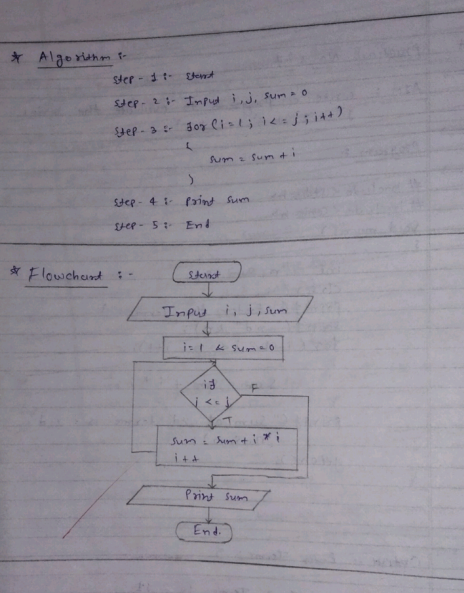 * Algorithm :-
Step - 1 :- Start
Step - 2 :- Input i, j, sum = 0
Step - 3 :- for (i = 1 ; i <= j ; i++)
{
sum = sum + i
}
Step - 4 :- Print sum
Step - 5 :- End
* Flowchart :-
Start
Input i, j, sum
i = 1 & sum = 0
if
i <= j
F
T
sum = sum + i * i
i++
Print sum
End.